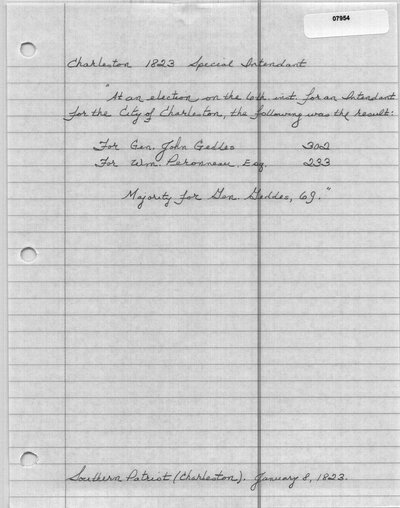 07954
Charleston 1823 Special Intendant
"At an election on the 6th. inst. for an Intendant
for the City of Charleston, the following was the result:
For Gen. John Geddes 302
For Wm. Peronneau, Esq. 233
Majority for Gen. Geddes, 69."
Southern Patriot (Charleston). January 8, 1823.